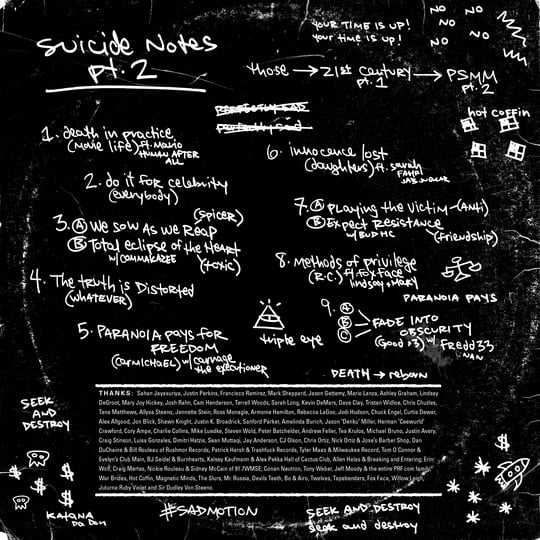 Suicide Notes
pt. 2
YOUR TIME IS UP!
Your time is up!
NO NO
NO NO
NO
those → 21st century → PSMM
pt. 1
pt. 2
PERFECTLY SAD
perfectly sad
hot coffin
1. death in practice
(movie life) ft. Mario
HUMAN AFTER
ALL
2. do it for celebrity
(everybody)
(spicer)
3. Ⓐ We sow As we Reap
Ⓑ Total eclipse of the Heart
w/ COMMAKAZEE
(toxic)
4. The truth is Distorted
(WHATEVER)
5. PARANOIA PAYS FOR
FREEDOM
(CARMICHAEL) w/ carnage
the executioner
6. innocence lost
(daughters) ft. sarah
7. Ⓐ PLAYING the VICTIM -(Anti)
Ⓑ Expect Resistance
w/ BUDHC
(friendship)
8. Methods of privilege
(R.C.) ft. foxface
lindsay + Mary
PARANOIA PAYS
9. Ⓐ
Ⓑ
Ⓒ
FADE INTO
OBSCURITY
(Good :3) w/ Fredd33
NAN
triple eye
DEATH → reborn
THANKS: Sahan Jayasuriya, Justin Perkins, Francisco Ramirez, Mark Sheppard, Jason Gettemy, Mario Lanza, Ashley Graham, Lindsey
DeGroot, Mary Joy Hickey, Josh Rahn, Cam Henderson, Terrell Woods, Sarah Long, Kevin DeMars, Dave Cley, Tristan Widloe, Chris Chuzles,
Tana Matthews, Allysa Steeno, Jennette Stein, Ross Monagle, Armonie Hamilton, Rebecca LaGoo, Jodi Hudson, Chuck Engel, Curtis Dewar,
Alex Allgood, Jon Block, Shawn Knight, Justin K. Broedrick, Sanford Parker, Amelinda Burich, Jason "Denko" Miller, Herman Luedtke,
Crawford, Cory Ampe, Charlie Collins, Mike Luecke, Steven Wold, Peter Batchelder, Andrew Feller, Tea Krulos, Michael Bruno, Justin Avery,
Craig Stinson, Luisa Gonzales, Dimitri Hatzis, Sean Muttaqi, Jay Anderson, CJ Olson, Chris Ortiz, Nick Ortiz & Jose's Barber Shop, Dan
DuChaine & Bill Rouleau of Rushmor Records, Patrick Harsh & Trashfuck Records, Tyler Maas & Milwaukee Record, Tom O Connor &
Evelyn's Club Main, BJ Seidel & Burnhearts, Kelsey Kaufmann & Alex Pekka Hall of Cactus Club, Allen Halas & Breaking and Entering, Erin
Wolf, Craig Mertes, Nickie Rouleau & Sidney McCain of 91.7WMSE; Conan Neutron, Tony Weber, Jeff Moody & the entire PRF.com family,
War Brides, Hot Coffin, Magnetic Minds, The Slurs, Mr. Russia, Devils Teeth, Bo & Airo, Twelves, Tapebenders, Fox Face, Willow Leigh,
Juturna Ruby Violet and Sir Dudley Von Steeno.
SEEK
AND
DESTROY
KATANA
DA DON
#SADMOTION
SEEK AND DESTROY
seek and destroy